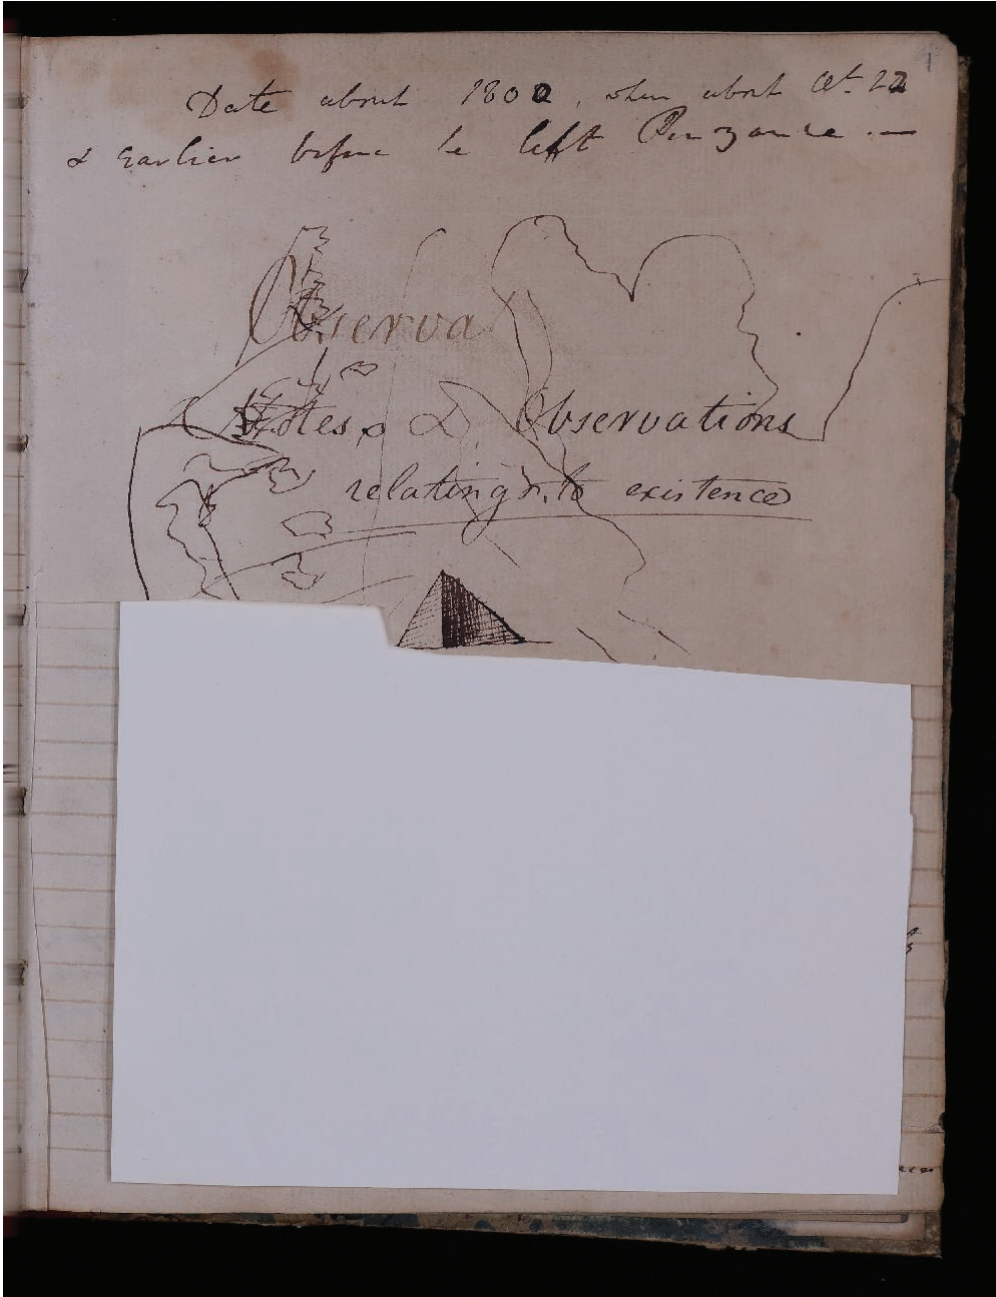 1
Date about 1800, when about Æt. 22
& Earlier before he left Penzance. —
Observa
Notes & Observations
relating to existence